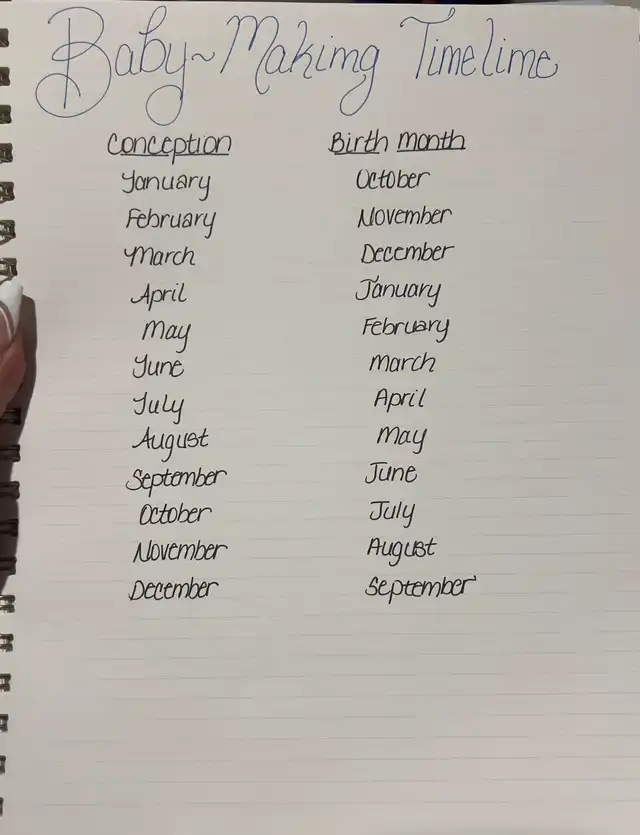 Baby~Making Timeline
Conception Birth month
January October
February November
March December
April January
May February
June March
July April
August May
September June
October July
November August
December September